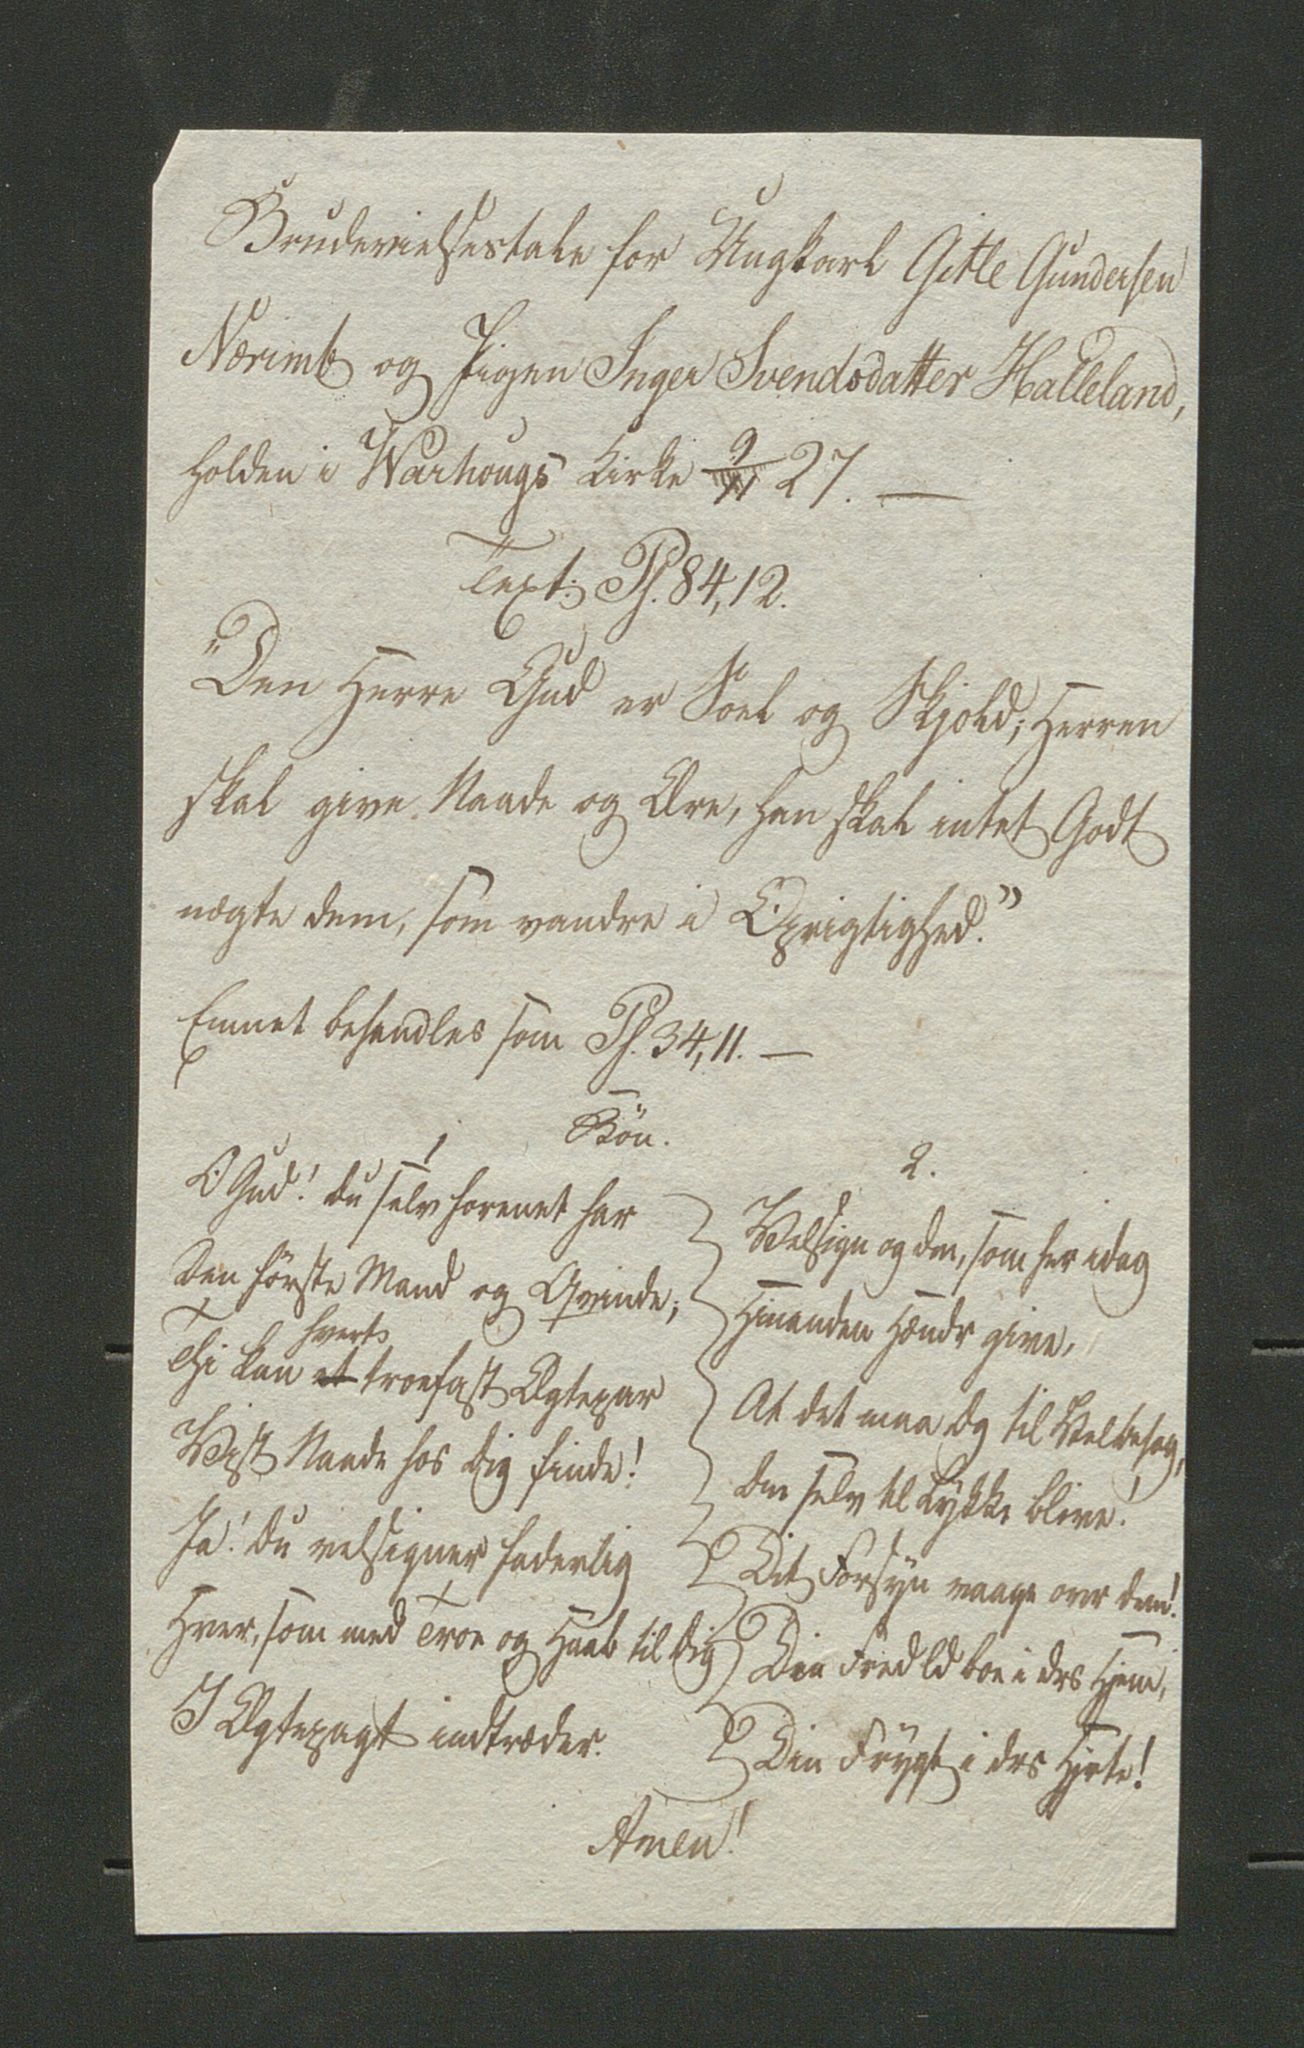 Brudevielsestale for Ungkarl Gitle Gundersen
Nærimb og Pigen Inger Svendsdatter Halleland,
holden i Warhougs Kirke 9/11 27. —
Text: Ps. 84,12.
"Den Herre Gud er Soel og Skjold; Herren
skal give Naade og Ære, han skal intet Godt
nægte dem, som vandre i Oprigtighed."
Emnet behandles som Ps. 34,11. —
Bön.
1
O Gud! du selv forenet har
Den förste Mand og Qvinde;
hvert
Thi kan et troefast Ægtepar
Vist Naade hos dig finde!
Ja! du velsigner faderlig
Hver, som med Troe og Haab til dig
I Ægtepagt indtræder.
2.
Velsign og dem, som her idag
Hinanden Hænder give,
At det maa dig til Velbehag,
dem selv til Lykke blive!
Dit Forsyn vaage over dem!
Din Fred ld boe i drs Hjem,
Din Frygt i drs Hjerte!
Amen!